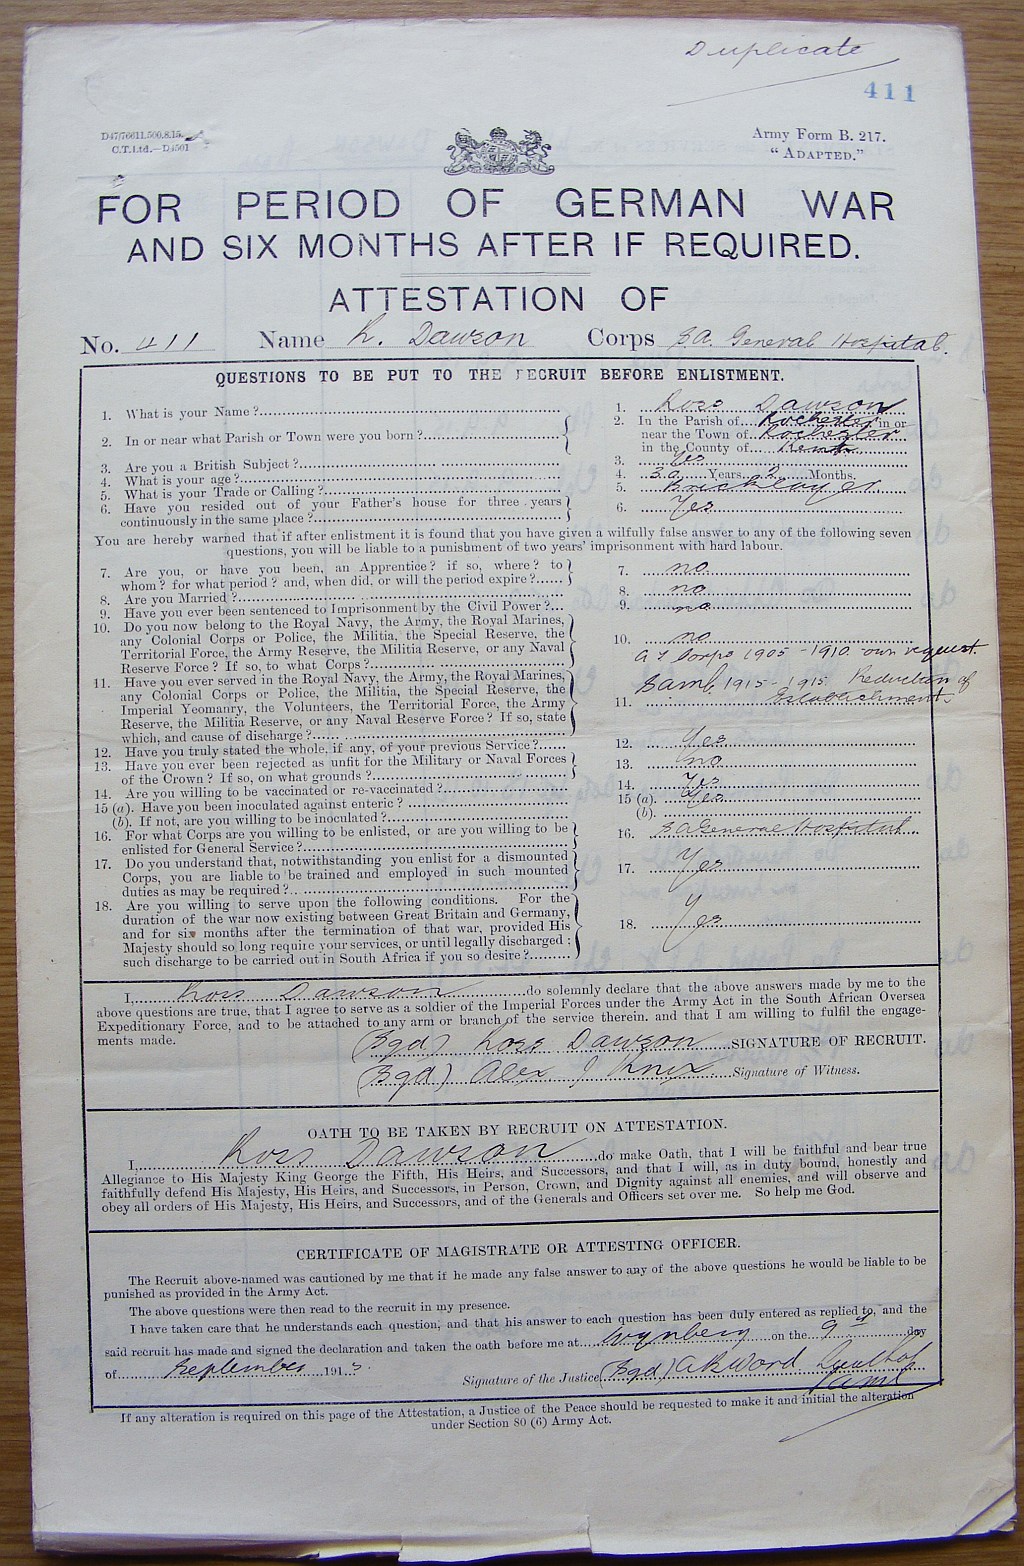 Duplicate
411
D47/76611.500.8.15.
C.T.Ltd.—D4501
Army Form B. 217.
“ADAPTED.”
FOR PERIOD OF GERMAN WAR
AND SIX MONTHS AFTER IF REQUIRED.
ATTESTATION OF
No. 411 Name R. Dawson Corps S.A. General Hospital.
QUESTIONS TO BE PUT TO THE RECRUIT BEFORE ENLISTMENT.
1. What is your Name? 1. Ross Dawson
2. In or near what Parish or Town were you born? 2. In the Parish of Rochester in or
near the Town of Rochester
in the County of Kent
3. Are you a British Subject? 3. Yes
4. What is your age? 4. Years 2 Months.
5. What is your Trade or Calling? 5. Bricklayer
6. Have you resided out of your Father's house for three years
continuously in the same place? 6. Yes
You are hereby warned that if after enlistment it is found that you have given a wilfully false answer to any of the following seven
questions, you will be liable to a punishment of two years' imprisonment with hard labour.
7. Are you, or have you been, an Apprentice? if so, where? to
whom? for what period? and, when did, or will the period expire? 7. no
8. Are you Married? 8. no
9. Have you ever been sentenced to Imprisonment by the Civil Power? 9. no
10. Do you now belong to the Royal Navy, the Army, the Royal Marines,
any Colonial Corps or Police, the Militia, the Special Reserve, the
Territorial Force, the Army Reserve, the Militia Reserve, or any Naval
Reserve Force? If so, to what Corps? 10. no
11. Have you ever served in the Royal Navy, the Army, the Royal Marines,
any Colonial Corps or Police, the Militia, the Special Reserve, the
Imperial Yeomanry, the Volunteers, the Territorial Force, the Army
Reserve, the Militia Reserve, or any Naval Reserve Force? If so, state
which, and cause of discharge? 11.
Corps 1905 - 1910 own request.
1915 - 1915 Reduction of
Establishment.
12. Have you truly stated the whole, if any, of your previous Service? 12. Yes
13. Have you ever been rejected as unfit for the Military or Naval Forces
of the Crown? If so, on what grounds? 13. no
14. Are you willing to be vaccinated or re-vaccinated? 14. Yes
15 (a). Have you been inoculated against enteric? 15 (a). Yes
(b). If not, are you willing to be inoculated? (b).
16. For what Corps are you willing to be enlisted, or are you willing to be
enlisted for General Service? 16. S A General Hospital
17. Do you understand that, notwithstanding you enlist for a dismounted
Corps, you are liable to be trained and employed in such mounted
duties as may be required? 17. Yes
18. Are you willing to serve upon the following conditions. For the
duration of the war now existing between Great Britain and Germany,
and for six months after the termination of that war, provided His
Majesty should so long require your services, or until legally discharged:
such discharge to be carried out in South Africa if you so desire? 18. Yes
I, Ross Dawson do solemnly declare that the above answers made by me to the
above questions are true, that I agree to serve as a soldier of the Imperial Forces under the Army Act in the South African Oversea
Expeditionary Force, and to be attached to any arm or branch of the service therein. and that I am willing to fulfil the engage-
ments made.
(Sgd) Ross Dawson SIGNATURE OF RECRUIT.
(Sgd) Alex J Knox Signature of Witness.
OATH TO BE TAKEN BY RECRUIT ON ATTESTATION.
I, Ross Dawson do make Oath, that I will be faithful and bear true
Allegiance to His Majesty King George the Fifth, His Heirs, and Successors, and that I will, as in duty bound, honestly and
faithfully defend His Majesty, His Heirs, and Successors, in Person, Crown, and Dignity against all enemies, and will observe and
obey all orders of His Majesty, His Heirs, and Successors, and of the Generals and Officers set over me. So help me God.
CERTIFICATE OF MAGISTRATE OR ATTESTING OFFICER.
The Recruit above-named was cautioned by me that if he made any false answer to any of the above questions he would be liable to be
punished as provided in the Army Act.
The above questions were then read to the recruit in my presence.
I have taken care that he understands each question, and that his answer to each question has been duly entered as replied to, and the
said recruit has made and signed the declaration and taken the oath before me at Wynberg on the 9 day
of September 191
Signature of the Justice (Sgd)
If any alteration is required on this page of the Attestation, a Justice of the Peace should be requested to make it and initial the alteration
under Section 80 (6) Army Act.